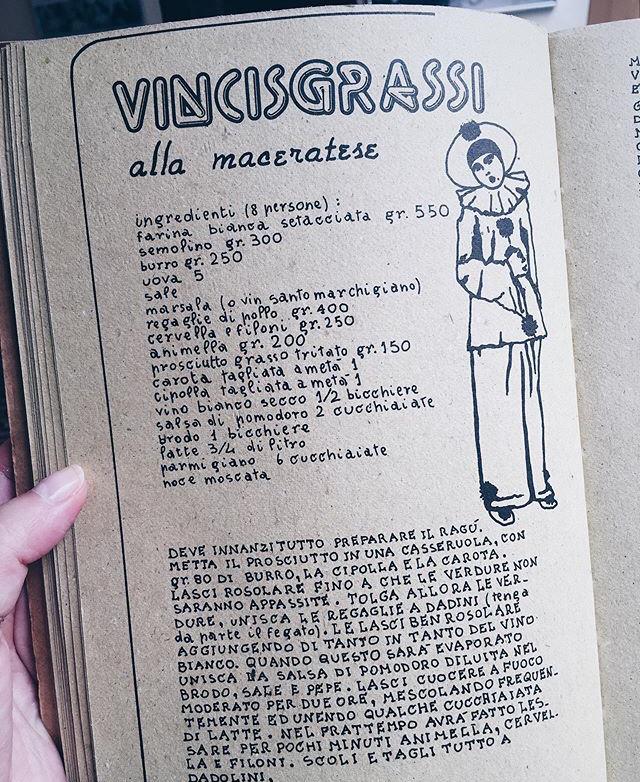 VINCISGRASSI
alla maceratese
ingredienti (8 persone):
farina bianca setacciata gr. 550
semolino gr. 300
burro gr. 250
uova 5
sale
marsala (o vin santo marchigiano)
regaglie di pollo gr. 400
cervella e filoni gr. 250
animella gr. 200
prosciutto grasso tritato gr. 150
carota tagliata a metà 1
cipolla tagliata a metà 1
vino bianco secco 1/2 bicchiere
salsa di pomodoro 2 cucchiaiate
brodo 1 bicchiere
latte 3/4 di litro
parmigiano 6 cucchiaiate
noce moscata
DEVE INNANZITUTTO PREPARARE IL RAGÙ.
METTA IL PROSCIUTTO IN UNA CASSERUOLA, CON
gr. 80 DI BURRO, LA CIPOLLA E LA CAROTA.
LASCI ROSOLARE FINO A CHE LE VERDURE NON
SARANNO APPASSITE. TOLGA ALLORA LE VER-
DURE, UNISCA LE REGAGLIE A DADINI (tenga
da parte il fegato). LE LASCI BEN ROSOLARE
AGGIUNGENDO DI TANTO IN TANTO DEL VINO
BIANCO. QUANDO QUESTO SARÀ EVAPORATO
UNISCA LA SALSA DI POMODORO DILUITA NEL
BRODO, SALE E PEPE. LASCI CUOCERE A FUOCO
MODERATO PER DUE ORE, MESCOLANDO FREQUEN-
TEMENTE ED UNENDO QUALCHE CUCCHIAIATA
DI LATTE. NEL FRATTEMPO AVRÀ FATTO LES-
SARE PER POCHI MINUTI ANIMELLA, CERVEL-
LA E FILONI. SCOLI E TAGLI TUTTO A
DADOLINI.